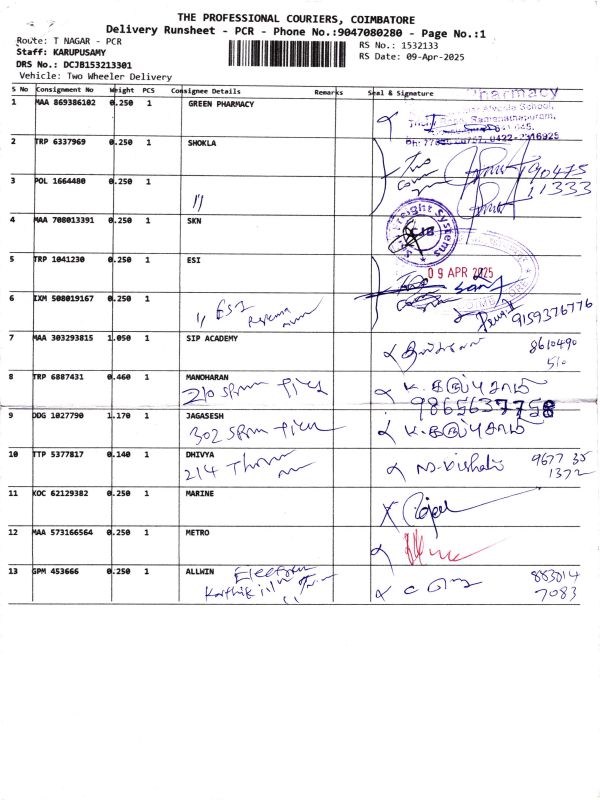 THE PROFESSIONAL COURIERS, COIMBATORE
Delivery Runsheet - PCR - Phone No.:9047080280 - Page No.:1
Route: T NAGAR - PCR
RS No.: 1532133
Staff: KARUPUSAMY
RS Date: 09-Apr-2025
DRS No.: DCJB153213301
Vehicle: Two Wheeler Delivery
S No Consignment No Weight PCS Consignee Details Remarks Seal & Signature
1 MAA 869386102 0.250 1 GREEN PHARMACY
Pharmacy
School,
Ramanathapuram,
0422-2316925
2 TRP 6337969 0.250 1 SHOKLA
90475
3 POL 1664480 0.250 1
11333
4 MAA 708013391 0.250 1 SKN
Freight Systems
5 TRP 1041230 0.250 1 ESI
09 APR 2025
6 IXM 508019167 0.250 1
ESI
9159376776
7 MAA 303293815 1.050 1 SIP ACADEMY
8610490
510
8 TRP 6887431 0.460 1 MANOHARAN
210
க.கருப்புசாமி
9865637758
9 DDG 1027790 1.170 1 JAGASESH
302
க.கருப்புசாமி
10 TTP 5377817 0.140 1 DHIVYA
214
9677 35
1372
11 KOC 62129382 0.250 1 MARINE
12 MAA 573166564 0.250 1 METRO
13 GPM 453666 0.250 1 ALLWIN
Karthik
883014
7083